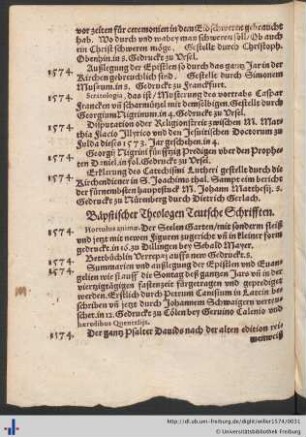 vor zeiten für ceremonien in dem Eidschweren gebraucht
hab. Wo durch und wabey man schweren soll/ Ob auch
ein Christ schweren möge. Gestelle durch Christoph.
Obenhin. in 8. Gedruckt zu Vrsel.
1574. Außlegung der Epistlen so durch das gantz Jar in der
Kirchen gebreuchlich sind. Gestelle durch Simonem
Musæum. in 8. Gedruckt zu Franckfurt.
1574. das ist/ Musterung des vortrabs Caspar
Francken vñ scharmützel mit demselbigen. Gestelt durch
Georgium Nigrinum. in 4. Gedruckt zu Vrsel.
Disputation oder Religionstreit zwischen M. Mat-
thia Flacio Illyrico vnd den Jesuitischen Doctorum zu
Fulda dieses 1573. Jar geschehen. in 4.
Georgij Nigrini fünfftzig Predigen vber den Prophe-
ten Daniel. in fol. Gedruckt zu Vrsel.
Erklerung des Catechismi Lutheri gestelle durch die
Kirchendiener in S. Joachims thal. Sampt eim bericht
der fürnembsten hauptstuck M. Johann Matthesij. 8.
Gedruckt zu Nürmberg durch Dietrich Gerlach.
Bäpstischer Theologen Teutsche Schrifften.
1574. Hortulus animæ. Der Seelen Garten/ mit sonderm fleiß
vnd jetzt mit newen Figuren zugericht vñ in kleiner form
gedruckt. in 16. zu Dillingen bey Sebald Mayer.
Bettbüchlin Verrepæi auffs new Gedruckt. 8.
1574. Summarien vnd außlegung der Epistlen vnd Euan-
gelien wie sie auff die Sontag deß gantzen Jars vñ in der
viertzigtägigen fastenzeit fürgetragen vnd geprediget
werden. Erstlich durch Petrum Canisium in Latein be-
schriben vñ jetzt durch Johannem Schwaitzern verteut-
schet. in 12. Gedruckt zu Cölen bey Geruino Calenio vnd
hæredibus Quentelijs.
1574. Der gantz Psalter Dauids nach der alten edition reim
menweiß
http://dl.ub.uni-freiburg.de/diglit/willer1574/0031
© Universitätsbibliothek Freiburg